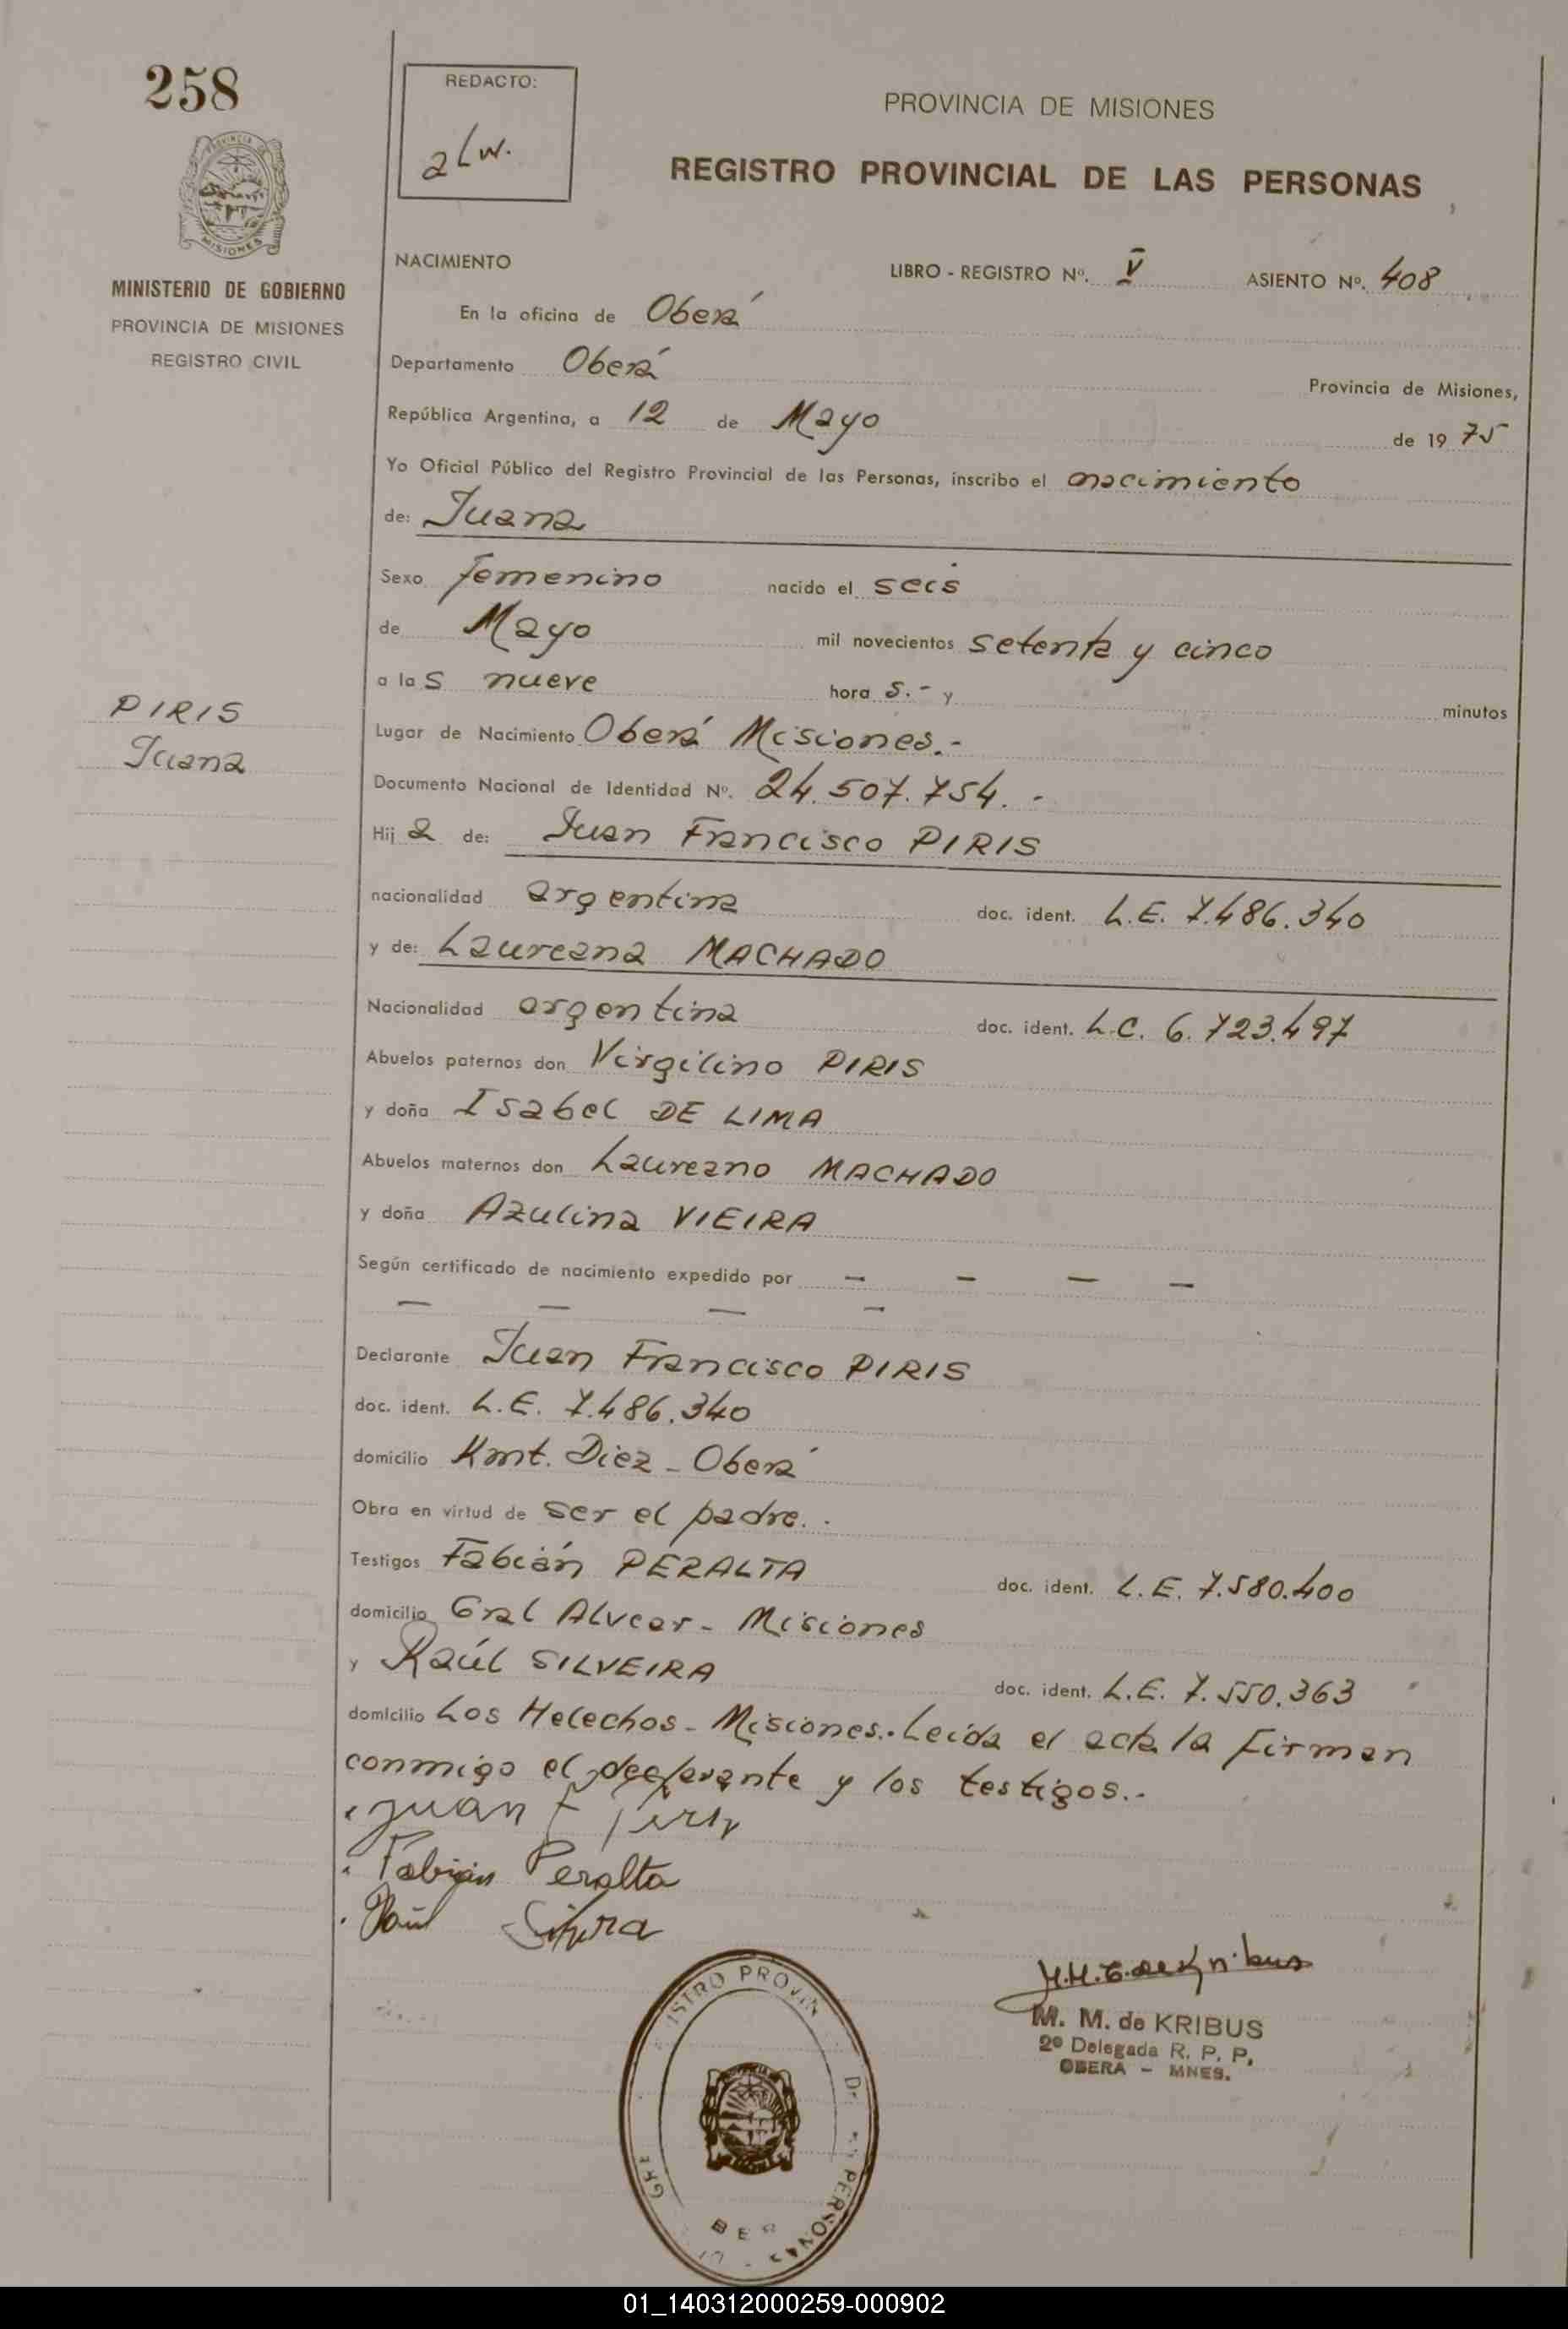 258
REDACTO:
aLw.
PROVINCIA DE MISIONES
REGISTRO PROVINCIAL DE LAS PERSONAS
MISIONES
MINISTERIO DE GOBIERNO
PROVINCIA DE MISIONES
REGISTRO CIVIL
NACIMIENTO LIBRO - REGISTRO Nº. V ASIENTO Nº. 408
En la oficina de Oberá
Departamento Oberá Provincia de Misiones,
República Argentina, a 12 de Mayo de 1975
Yo Oficial Público del Registro Provincial de las Personas, inscribo el nacimiento
de: Juana
Sexo femenino nacido el seis
de Mayo mil novecientos setenta y cinco
a las nueve hora s.- y minutos
PIRIS
Juana
Lugar de Nacimiento Oberá Misiones.-
Documento Nacional de Identidad Nº. 24.507.754.-
Hija de: Juan Francisco PIRIS
nacionalidad argentina doc. ident. L.E. 7.486.340
y de: Laureana MACHADO
Nacionalidad argentina doc. ident. L.C. 6.723.497
Abuelos paternos don Virgilino PIRIS
y doña Isabel DE LIMA
Abuelos maternos don Laureano MACHADO
y doña Azulina VIEIRA
Según certificado de nacimiento expedido por — — — —
— — — —
Declarante Juan Francisco PIRIS
doc. ident. L.E. 7.486.340
domicilio Kmt. Diez - Oberá
Obra en virtud de ser el padre..
Testigos Fabián PERALTA doc. ident. L.E. 7.580.400
domicilio Gral Alvear - Misiones
y Raúl SILVEIRA doc. ident. L.E. 7.550.363
domicilio Los Helechos - Misiones.- Leída el acta la firman
conmigo el declarante y los testigos.-
Juan F Piris
Fabián Peralta
Raúl
M. M. de KRIBUS
2º Delegada R. P. P.
OBERA - MNES.
01_140312000259-000902